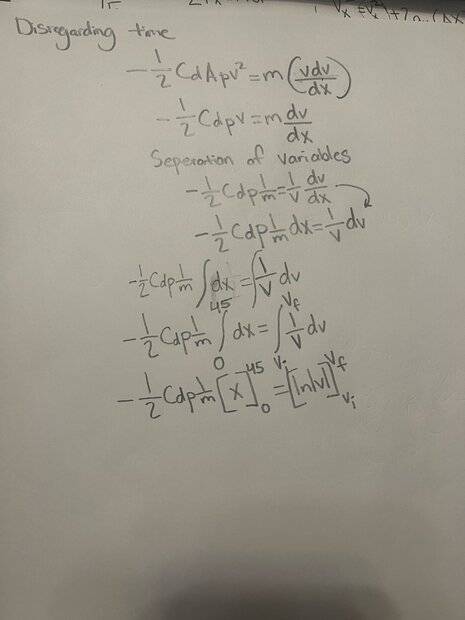 Disregarding time
-1/2 CdApv² = m(vdv/dx)
-1/2 Cdpv = m dv/dx
Seperation of variables
-1/2 Cdp 1/m = 1/v dv/dx
-1/2 Cdp 1/m dx = 1/v dv
-1/2 Cdp 1/m ∫ dx = ∫ 1/v dv
-1/2 Cdp 1/m ∫₀⁴⁵ dx = ∫_vi^vf 1/v dv
-1/2 Cdp 1/m [x]₀⁴⁵ = [ln|v|]_vi^vf